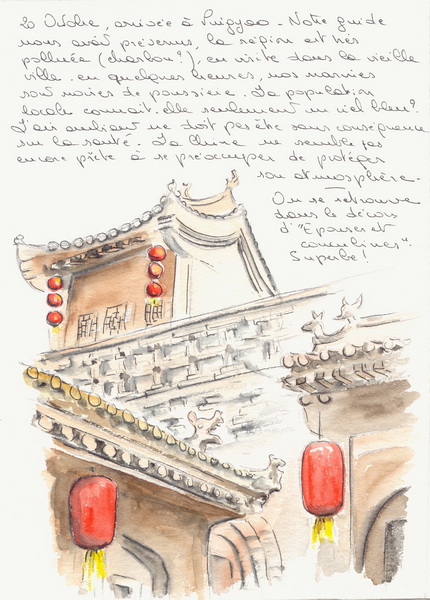 20 Octobre, arrivée à Pingyao. Notre guide
nous avait prévenus, la région est très
polluée (charbon?), en visite dans la vieille
ville. en quelques heures, nos narines
sont noires de poussière. La population
locale connait-elle seulement un ciel bleu?
L'air ambiant ne doit pas être sans conséquence
sur la santé. La Chine ne semble pas
encore prête à se préoccuper de protéger
son atmosphère.
On se retrouve
dans le décors
d'"Epouses et
concubines".
Superbe!